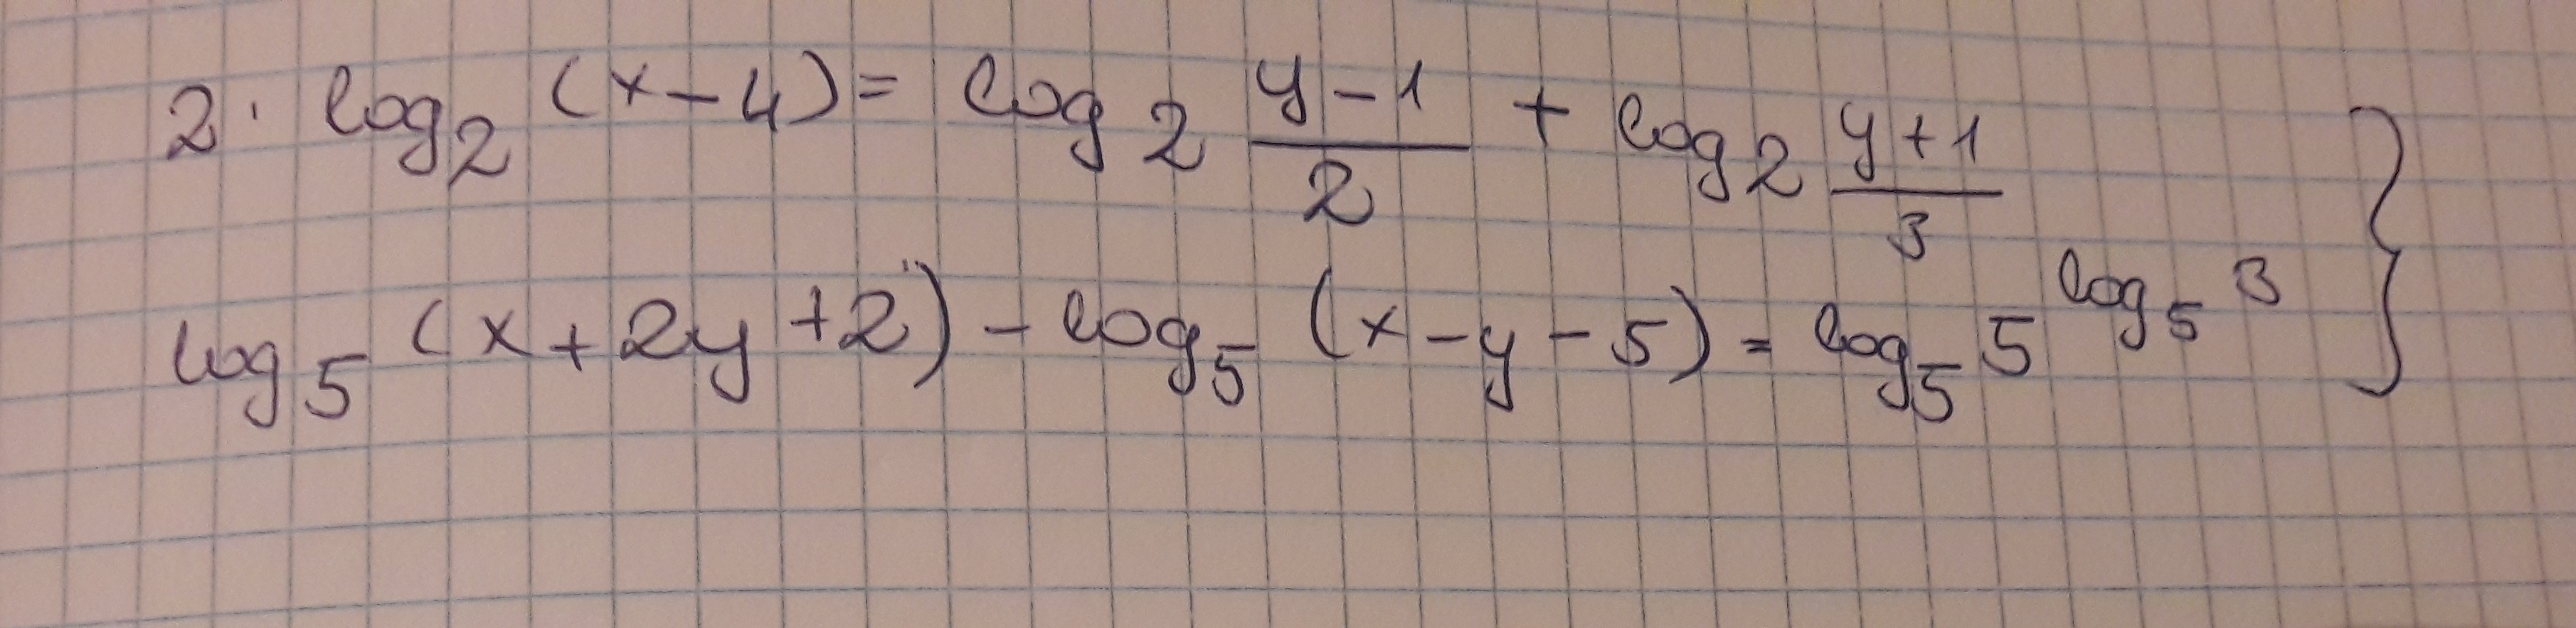 2 · log₂ (x-4) = log₂ (y-1)/2 + log₂ (y+1)/3 }
log₅ (x+2y+2) - log₅ (x-y-5) = log₅ 5^(log₅ 3)